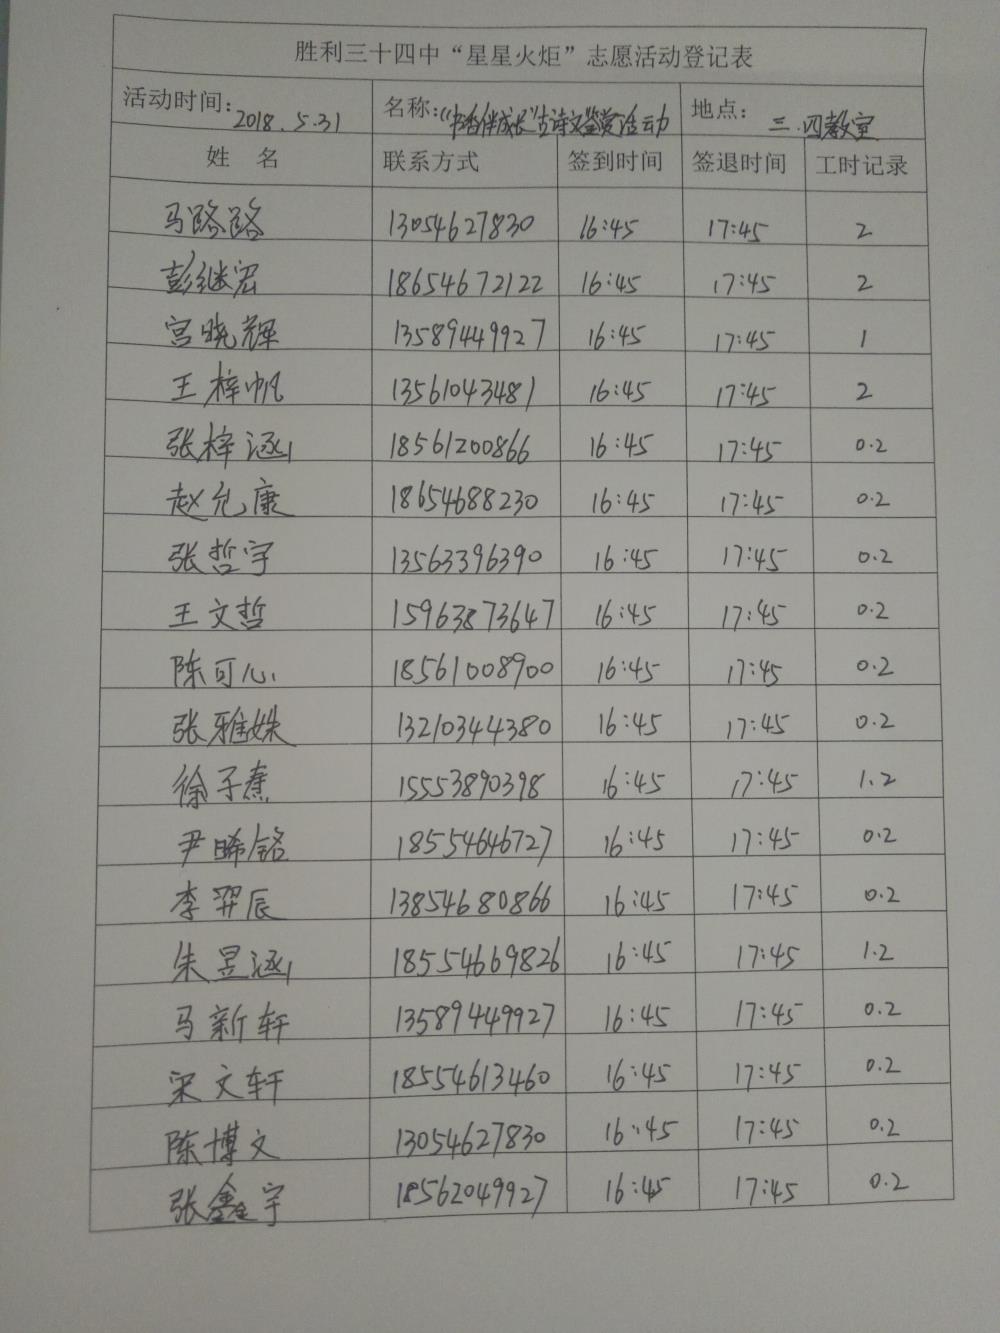 胜利三十四中“星星火炬”志愿活动登记表
活动时间：2018.5.31 名称：“书香伴成长”古诗文鉴赏活动 地点：三.四教室
姓 名 联系方式 签到时间 签退时间 工时记录
马路路 13054627830 16:45 17:45 2
彭继宏 18654672122 16:45 17:45 2
宫晓辉 13589449927 16:45 17:45 1
王梓帆 13561043481 16:45 17:45 2
张梓涵 18561200866 16:45 17:45 0.2
赵允康 18654688230 16:45 17:45 0.2
张哲宇 13563396390 16:45 17:45 0.2
王文哲 15963873647 16:45 17:45 0.2
陈可心 18561008900 16:45 17:45 0.2
张雅姝 13210344380 16:45 17:45 0.2
徐子熏 15553890398 16:45 17:45 1.2
尹晞铭 18554646727 16:45 17:45 0.2
李羿辰 13854680866 16:45 17:45 0.2
朱昱涵 18554669826 16:45 17:45 1.2
马新轩 13589449927 16:45 17:45 0.2
宋文轩 18554613460 16:45 17:45 0.2
陈博文 13054627830 16:45 17:45 0.2
张鑫宇 18562049927 16:45 17:45 0.2